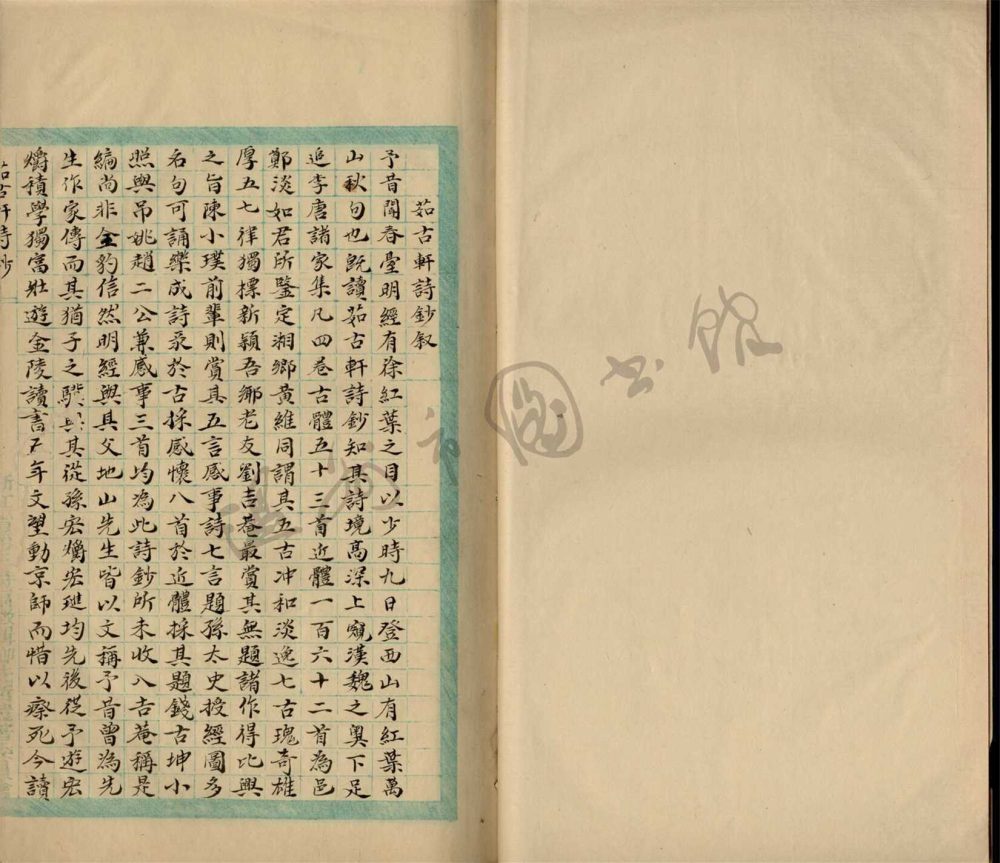 茹古軒詩鈔叙
予昔聞春臺明經有徐紅葉之目以少時九日登西山有紅葉萬
山秋句也既讀茹古軒詩鈔知其詩境高深上窺漢魏之奧下足
追李唐諸家集凡四卷古體五十三首近體一百六十二首為邑
鄭淡如君所鑒定湘鄉黃維同謂其五古冲和淡逸七古瑰奇雄
厚五七律獨摽新穎吾鄉老友劉吉菴最賞其無題諸作得比興
之旨陳小璞前輩則賞其五言感事詩七言題孫太史授經圖多
名句可誦樂成詩录於古採感懷八首於近體採其題錢古坤小
照與吊姚趙二公兼感事三首均為此詩鈔所未收入吉菴稱是
編尚非全豹信然明經與其父地山先生皆以文稱予昔曾為先
生作家傳而其猶子之驥其從孫宏爝宏璡均先後從予遊宏
爝積學獨富壯遊金陵讀書年文望動京師而惜以瘵死今讀
茹古軒詩鈔
市圖書館